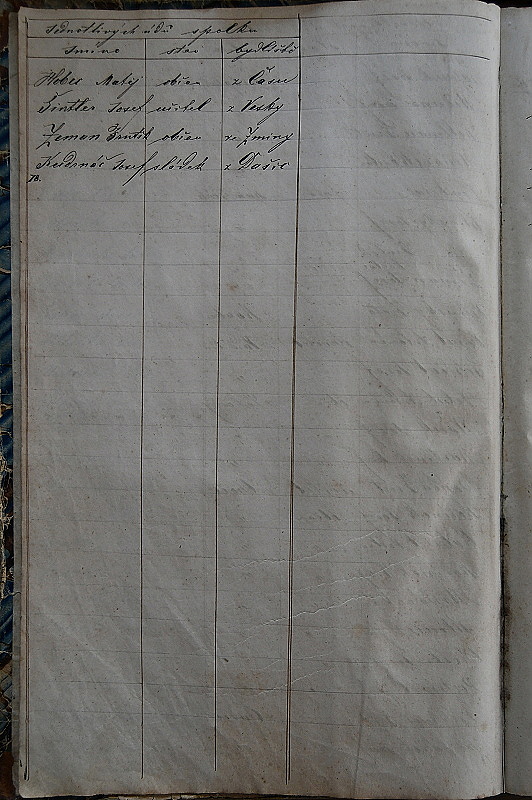 Jednotlivých údů spolku
Jméno stav bydliště
Weber Matěj občan z Času
Tintler Josef učitel z Vesky
Zeman František občan ze Žminy
Josef sládek z Dašic
78.